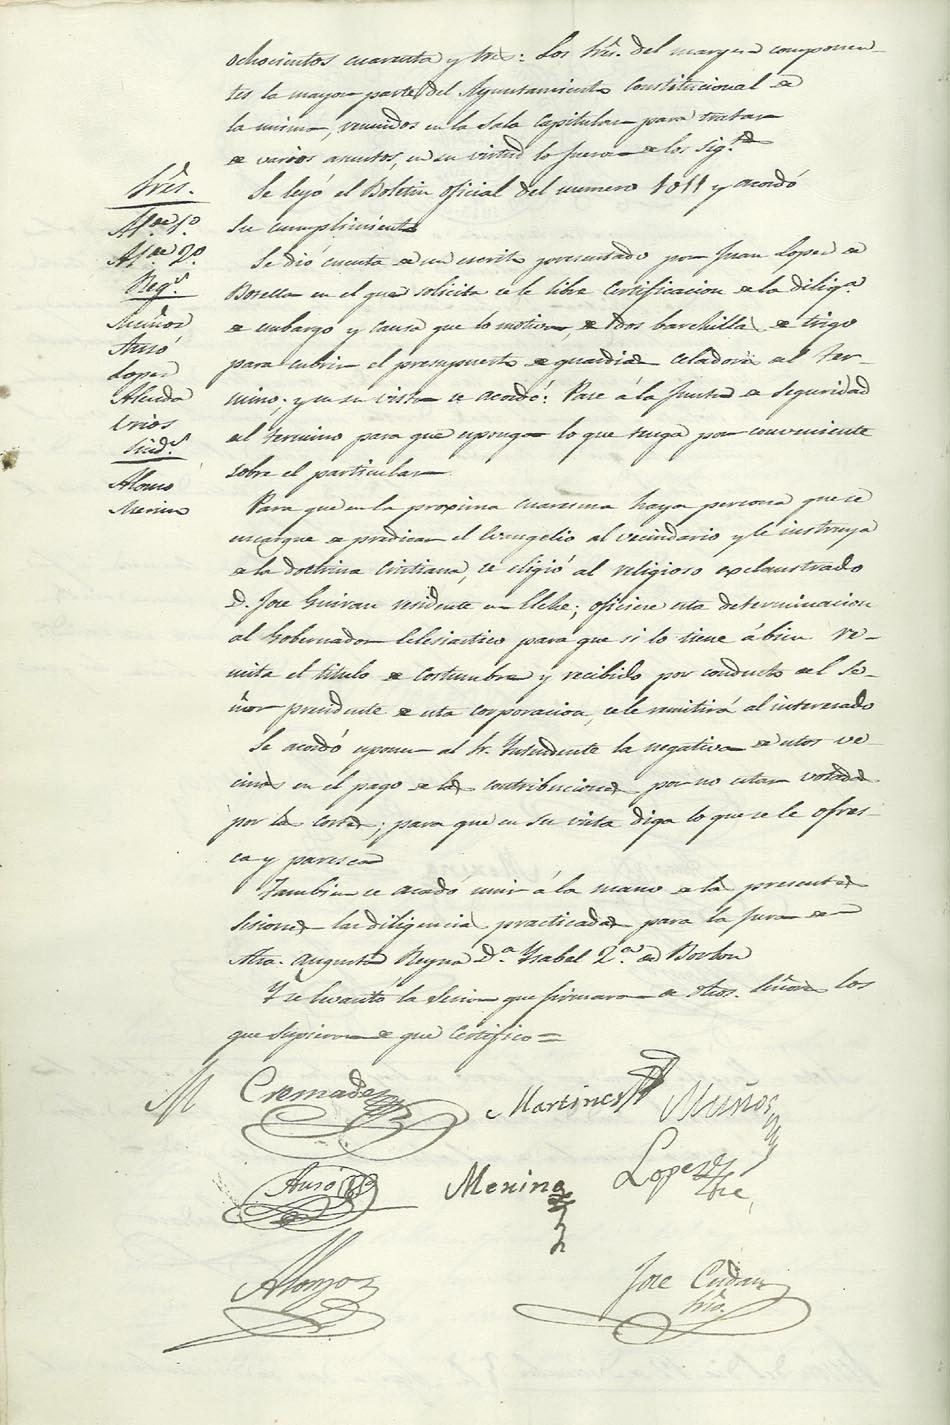 ochocientos cuarenta y tres: Los Srēs. del margen componen-
tes la mayor parte del Ayuntamiento Constitucional de
la misma, reunidos en la Sala Capitular para tratar
de varios asuntos, en su virtud lo fueron de los sig.tes
Srēs.
Alc.de 1.º
Alc.de 2.º
Reg.s
Muñoz
Auso
Lopez
Aleuda
Urios
Sind.s
Alonso
Menino
Se leyó el Boletin oficial del numero 1011 y acordó
su cumplimiento
Se dió cuenta de un escrito presentado por Juan Lopez de
Botella en el que solicita se le libre Certificacion de la dilig.a
de embargo y causa que lo motiva, de dos barchillas de trigo
para cubrir el presupuesto de guardias celadores del ter-
mino; y en su vista se acordó: Pase á la Junta de Seguridad
del termino para que esponga lo que tenga por conveniente
sobre el particular
Para que en la proxima cuaresma haya persona que se
encargue de predicar el Evangelio al vecindario y le instruya
de la doctrina Cristiana, se eligió al religioso exclaustrado
D. Jose Guirau residente en Elche; oficiese esta determinacion
al Gobernador Eclesiastico para que si lo tiene á bien re-
mita el titulo de costumbre y recibido por conducto del Se-
ñor presidente de esta corporacion, se le remitirá al interesado
Se acordó esponer al Sr. Yntendente la negativa de estos ve-
cinos en el pago de las contribuciones por no estar votadas
por las cortes; para que en su vista diga lo que se le ofres-
ca y paresca
Tambien se acordó unir á la mano de las presentes
sesiones las diligencias practicadas para la Jura de
Ntra. Augusta Reyna D.a Ysabel 2.a de Borbon
Y se levantó la Sesion que firmaron de dhos. Señores los
que supieron de que Certifico=
M Cremades Martinez Muñoz
Auso Menino Lopez
Alonzo
Jose
Srio.